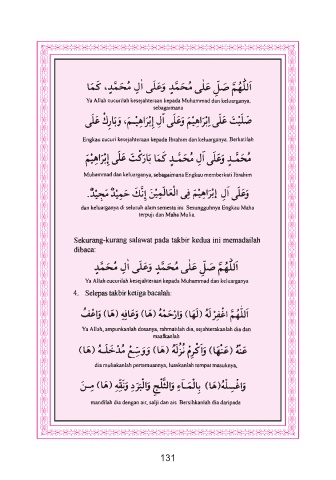 اَللّٰهُمَّ صَلِّ عَلٰى مُحَمَّدٍ وَعَلٰى اٰلِ مُحَمَّدٍ، كَمَا
Ya Allah cucurilah kesejahteraan kepada Muhammad dan keluarganya,
sebagaimana
صَلَّيْتَ عَلٰى اِبْرَاهِيْمَ وَعَلٰى اٰلِ اِبْرَاهِيْمَ، وَبَارِكْ عَلٰى
Engkau cucuri kesejahteraan kepada Ibrahim dan keluarganya. Berkatilah
مُحَمَّدٍ وَعَلٰى اٰلِ مُحَمَّدٍ كَمَا بَارَكْتَ عَلٰى اِبْرَاهِيْمَ
Muhammad dan keluarganya, sebagaimana Engkau memberkati Ibrahim
وَعَلٰى اٰلِ اِبْرَاهِيْمَ فِى الْعَالَمِيْنَ اِنَّكَ حَمِيْدٌ مَجِيْدٌ.
dan keluarganya di seluruh alam semesta ini. Sesungguhnya Engkau Maha
terpuji dan Maha Mulia.
Sekurang-kurang salawat pada takbir kedua ini memadailah
dibaca:
اَللّٰهُمَّ صَلِّ عَلٰى مُحَمَّدٍ وَعَلٰى اٰلِ مُحَمَّدٍ
Ya Allah cucurilah kesejahteraan kepada Muhammad dan keluarganya
4. Selepas takbir ketiga bacalah:
اَللّٰهُمَّ اغْفِرْلَهُ (لَهَا) وَارْحَمْهُ (هَا) وَعَافِهِ (هَا) وَاعْفُ
Ya Allah, ampunkanlah dosanya, rahmatilah dia, sejahterakanlah dia dan
maafkanlah
عَنْهُ (عَنْهَا) وَاَكْرِمْ نُزُلَهُ (هَا) وَوَسِّعْ مُدْخَلَهُ (هَا)
dia muliakanlah persemuannya, luaskanlah tempat masuknya,
وَاغْسِلْهُ(هَا) بِالْمَـاءِ وَالثَّلْجِ وَالْبَرَدِ وَنَقِّهِ (هَا) مِـنَ
mandilah dia dengan air, salji dan air. Bersihkanlah dia daripada
131